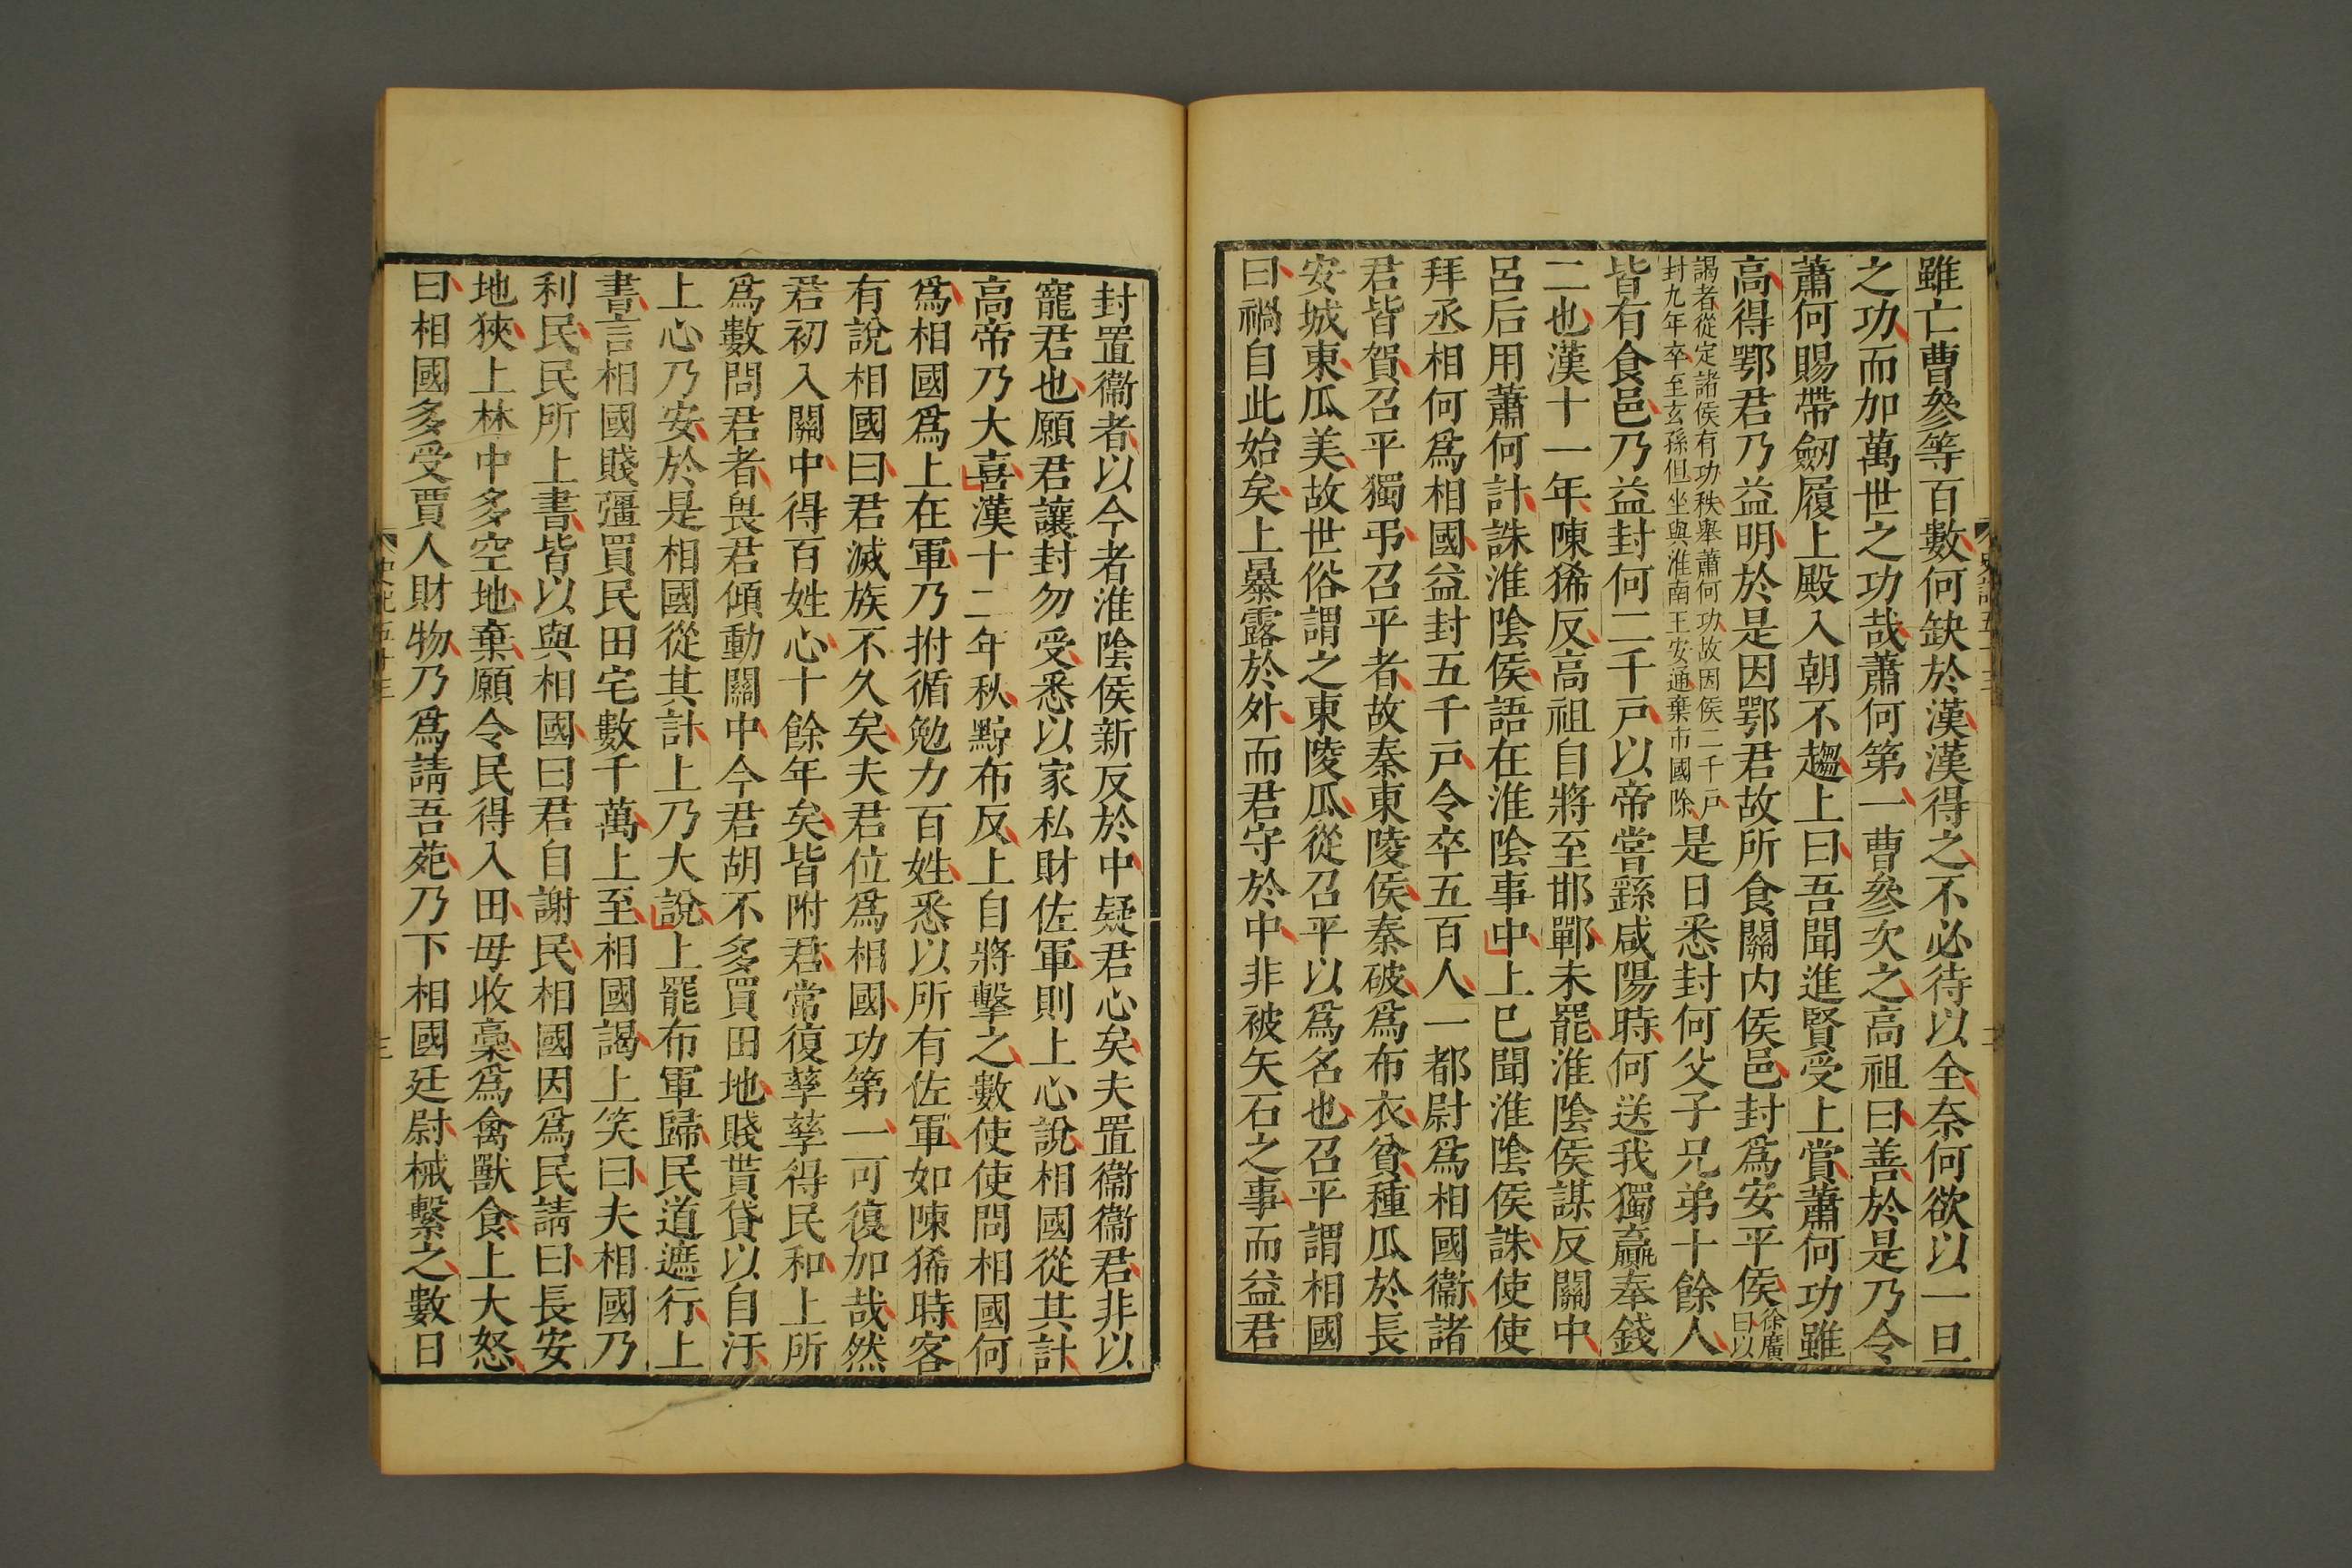 雖亡曹參等百數何缺於漢漢得之不必待以全奈何欲以一旦
之功而加萬世之功哉蕭何第一曹參次之高祖曰善於是乃令
蕭何賜帶劒履上殿入朝不趨上曰吾聞進賢受上賞蕭何功雖
高得鄂君乃益明於是因鄂君故所食關内侯邑封爲安平侯徐廣曰以
謁者從定諸侯有功秩舉蕭何功故因侯二千戸封九年卒至玄孫但坐與淮南王安通棄市國除是日悉封何父子兄弟十餘人
皆有食邑乃益封何二千戸以帝嘗繇咸陽時何送我獨贏奉錢
二也漢十一年陳豨反高祖自將至邯鄲未罷淮陰侯謀反關中
呂后用蕭何計誅淮陰侯語在淮陰事中上已聞淮陰侯誅使使
拜丞相何爲相國益封五千戸令卒五百人一都尉爲相國衞諸
君皆賀召平獨弔召平者故秦東陵侯秦破爲布衣貧種瓜於長
安城東瓜美故世俗謂之東陵瓜從召平以爲名也召平謂相國
曰禍自此始矣上暴露於外而君守於中非被矢石之事而益君
封置衞者以今者淮陰侯新反於中疑君心矣夫置衞衞君非以
寵君也願君讓封勿受悉以家私財佐軍則上心說相國從其計
高帝乃大喜漢十二年秋黥布反上自將擊之數使使問相國何
爲相國爲上在軍乃拊循勉力百姓悉以所有佐軍如陳豨時客
有說相國曰君滅族不久矣夫君位爲相國功第一可復加哉然
君初入關中得百姓心十餘年矣皆附君常復孳孳得民和上所
爲數問君者畏君傾動關中今君胡不多買田地賤貰貸以自汙
上心乃安於是相國從其計上乃大說上罷布軍歸民道遮行上
書言相國賤彊買民田宅數千萬上至相國謁上笑曰夫相國乃
利民民所上書皆以與相國曰君自謝民相國因爲民請曰長安
地狹上林中多空地棄願令民得入田毋收稾爲禽獸食上大怒
曰相國多受賈人財物乃爲請吾苑乃下相國廷尉械繫之數日